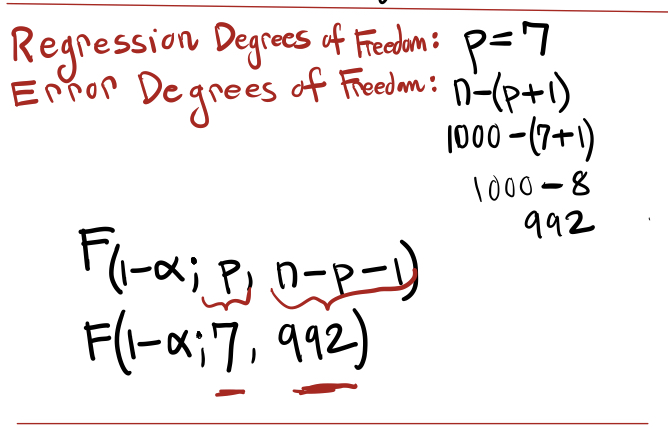 Regression Degrees of Freedom: p=7
Error Degrees of Freedom: n-(p+1)
1000-(7+1)
1000-8
992
F(1-α; p, n-p-1)
F(1-α; 7, 992)